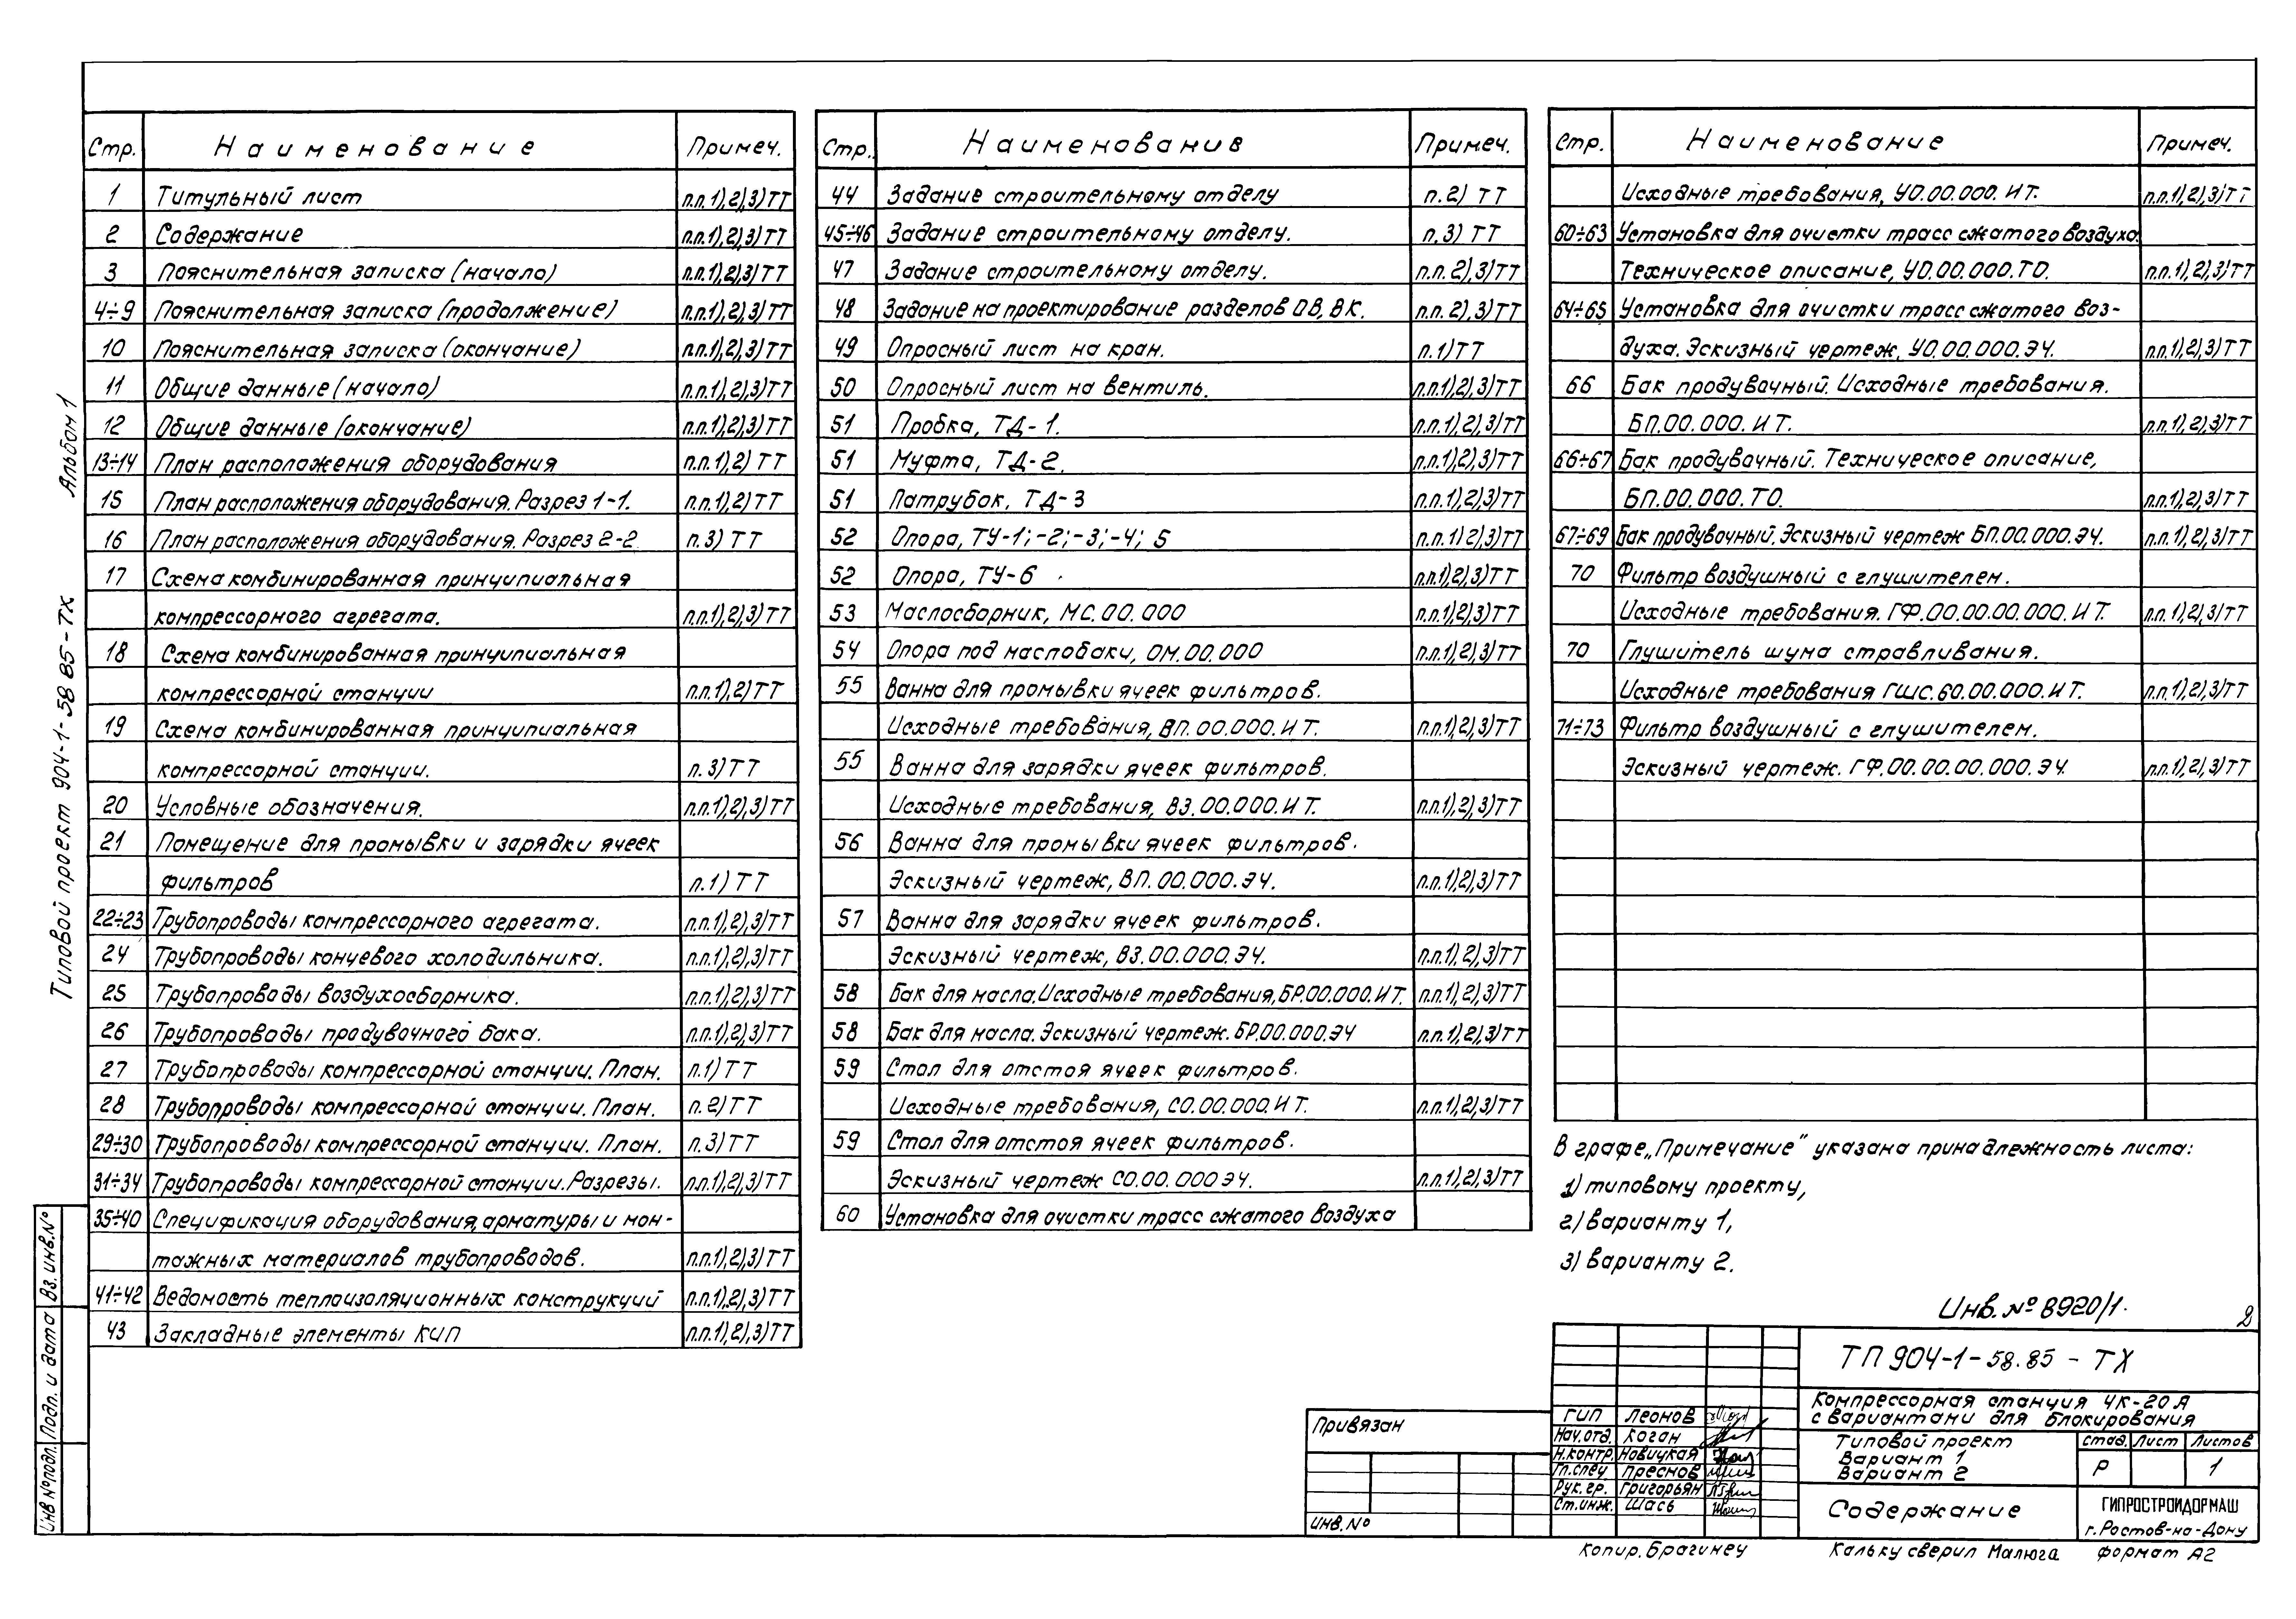 Типовой проект 904-1-58 85-ТХ Альбом 1
Стр. Наименование Примеч.
1 Титульный лист п.п.1),2),3)ТТ
2 Содержание п.п.1),2),3)ТТ
3 Пояснительная записка (начало) п.п.1),2),3)ТТ
4÷9 Пояснительная записка (продолжение) п.п.1),2),3)ТТ
10 Пояснительная записка (окончание) п.п.1),2),3)ТТ
11 Общие данные (начало) п.п.1),2),3)ТТ
12 Общие данные (окончание) п.п.1),2),3)ТТ
13÷14 План расположения оборудования п.п.1),2) ТТ
15 План расположения оборудования. Разрез 1-1. п.п.1),2)ТТ
16 План расположения оборудования. Разрез 2-2 п.3) ТТ
17 Схема комбинированная принципиальная
компрессорного агрегата. п.п.1),2),3)ТТ
18 Схема комбинированная принципиальная
компрессорной станции п.п.1),2)ТТ
19 Схема комбинированная принципиальная
компрессорной станции. п.3)ТТ
20 Условные обозначения. п.п.1),2),3)ТТ
21 Помещение для промывки и зарядки ячеек
фильтров п.1) ТТ
22÷23 Трубопроводы компрессорного агрегата. п.п.1),2),3)ТТ
24 Трубопроводы концевого холодильника. п.п.1),2),3)ТТ
25 Трубопроводы воздухосборника. п.п.1),2),3)ТТ
26 Трубопроводы продувочного бака. п.п.1),2),3)ТТ
27 Трубопроводы компрессорной станции. План. п.1)ТТ
28 Трубопроводы компрессорной станции. План. п.2)ТТ
29÷30 Трубопроводы компрессорной станции. План. п.3)ТТ
31÷34 Трубопроводы компрессорной станции. Разрезы. п.п.1),2),3)ТТ
35÷40 Спецификация оборудования, арматуры и мон-
тажных материалов трубопроводов. п.п.1),2),3)ТТ
41÷42 Ведомость теплоизоляционных конструкций п.п.1),2),3)ТТ
43 Закладные элементы КИП п.п.1),2),3)ТТ
Стр. Наименование Примеч.
44 Задание строительному отделу п.2) ТТ
45÷46 Задание строительному отделу. п.3) ТТ
47 Задание строительному отделу. п.п. 2),3)ТТ
48 Задание на проектирование разделов ОВ, ВК. п.п. 2),3)ТТ
49 Опросный лист на кран. п.1)ТТ
50 Опросный лист на вентиль. п.п.1),2),3)ТТ
51 Пробка, ТД-1. п.п.1),2),3)ТТ
51 Муфта, ТД-2. п.п.1),2),3)ТТ
51 Патрубок, ТД-3 п.п.1),2),3)ТТ
52 Опора, ТУ-1;-2;-3;-4; 5 п.п.1) 2),3)ТТ
52 Опора, ТУ-6 п.п.1),2),3)ТТ
53 Маслосборник, МС. 00. 000 п.п.1),2),3)ТТ
54 Опора под маслобаки, ОМ.00.000 п.п.1),2),3)ТТ
55 Ванна для промывки ячеек фильтров.
Исходные требования, ВП. 00.000. ИТ. п.п.1),2),3)ТТ
55 Ванна для зарядки ячеек фильтров.
Исходные требования, ВЗ. 00.000. ИТ. п.п.1),2),3)ТТ
56 Ванна для промывки ячеек фильтров.
Эскизный чертеж, ВП. 00.000.ЭЧ. п.п.1),2),3)ТТ
57 Ванна для зарядки ячеек фильтров.
Эскизный чертеж, ВЗ.00.000.ЭЧ. п.п.1),2),3)ТТ
58 Бак для масла. Исходные требования, БР.00.000.ИТ. п.п.1),2),3)ТТ
58 Бак для масла. Эскизный чертеж. БР.00.000.ЭЧ п.п.1),2),3)ТТ
59 Стол для отстоя ячеек фильтров.
Исходные требования, СО.00.000.ИТ. п.п.1),2),3)ТТ
59 Стол для отстоя ячеек фильтров.
Эскизный чертеж СО.00.000 ЭЧ. п.п.1),2),3)ТТ
60 Установка для очистки трасс сжатого воздуха
Стр. Наименование Примеч.
Исходные требования, УО.00.000. ИТ. п.п.1),2),3)ТТ
60÷63 Установка для очистки трасс сжатого воздуха.
Техническое описание, УО.00.000.ТО. п.п.1),2),3)ТТ
64÷65 Установка для очистки трасс сжатого воз-
духа. Эскизный чертеж, УО.00.000.ЭЧ. п.п.1),2),3)ТТ
66 Бак продувочный. Исходные требования.
БП.00.000. ИТ. п.п.1),2),3)ТТ
66÷67 Бак продувочный. Техническое описание,
БП.00.000.ТО. п.п.1),2),3)ТТ
67÷69 Бак продувочный. Эскизный чертеж БП.00.000.ЭЧ. п.п.1),2),3)ТТ
70 Фильтр воздушный с глушителем.
Исходные требования. ГФ.00.00.00.000.ИТ. п.п.1),2),3)ТТ
70 Глушитель шума стравливания.
Исходные требования ГШС.60.00.000.ИТ. п.п.1),2),3)ТТ
71÷73 Фильтр воздушный с глушителем.
Эскизный чертеж. ГФ.00.00.00.000.ЭЧ. п.п.1),2),3)ТТ
В графе „Примечание" указана принадлежность листа:
1) типовому проекту,
2) варианту 1,
3) варианту 2.
Инв. № 8920/1. 2
ТП 904-1-58.85 - ТХ
Компрессорная станция 4К-20А
с вариантами для блокирования
Типовой проект
Вариант 1
Вариант 2
Стад. Лист Листов
Р 1
Содержание
ГИПРОСТРОЙДОРМАШ
г.Ростов-на-Дону
ГИП Леонов
Нач.отд. Коган
Н.контр. Новицкая
Гл.спец. Преснов
Рук.гр. Григорьян
Ст.инж. Шась
Привязан
Инв.№
Копир. Брагинец Кальку сверил Малюга формат А2
Инв № подл. Подп. и дата Вз. инв.№